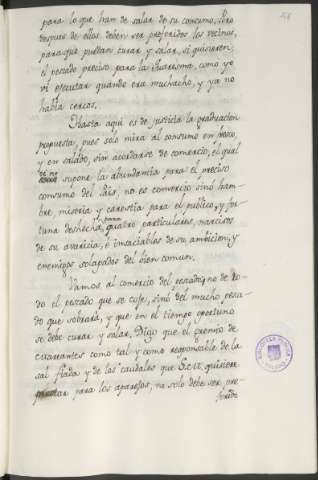 para lo que han de salar de su consumo. Pero
despues de ellos deben ser preferidos los vecinos,
para que puedan curar y salar, si quisieren,
el pescado preciso para la Quaresma, como yo
vi executar quando era muchacho, y ya no
habia cercos.
Hasta aqui es de justicia la graduacion
propuesta, pues solo mira al consumo en fresco,
y en salado, sin acordarse de comercio, el qual
si no supone la abundancia para el preciso
consumo del Pais, no es comercio sino ham-
bre, miseria y carestia para el publico, y for-
tuna deshecha para quatro particulares, narcisos
de su avericia, e insaciables de su ambicion, y
enemigos solapados del bien comun.
Vamos al comercio del pescado; no de to-
do el pescado que se coje, sinó del mucho pesca-
do que sobrará, y que en el tiempo oportuno
se debe curar y salar. Digo que el premio de
cuarantes como tal y como responsable de la
sal fiada y de los caudales que quisiere
prestar para los aparejos, no solo debe ser pre-
ferida